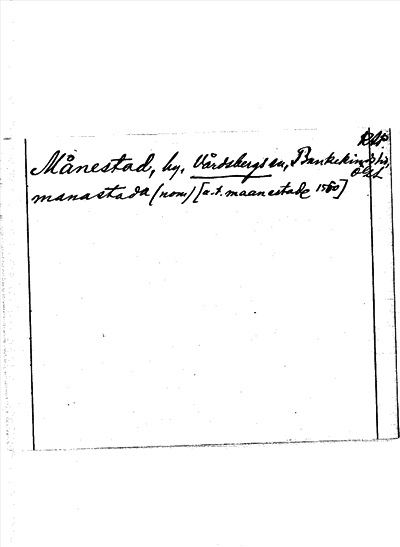 Månestad, by, Vårdsbergs sn, Bankekinds hd,
Ögl.
manastada (nom.) [a.t. maanestade 1580]